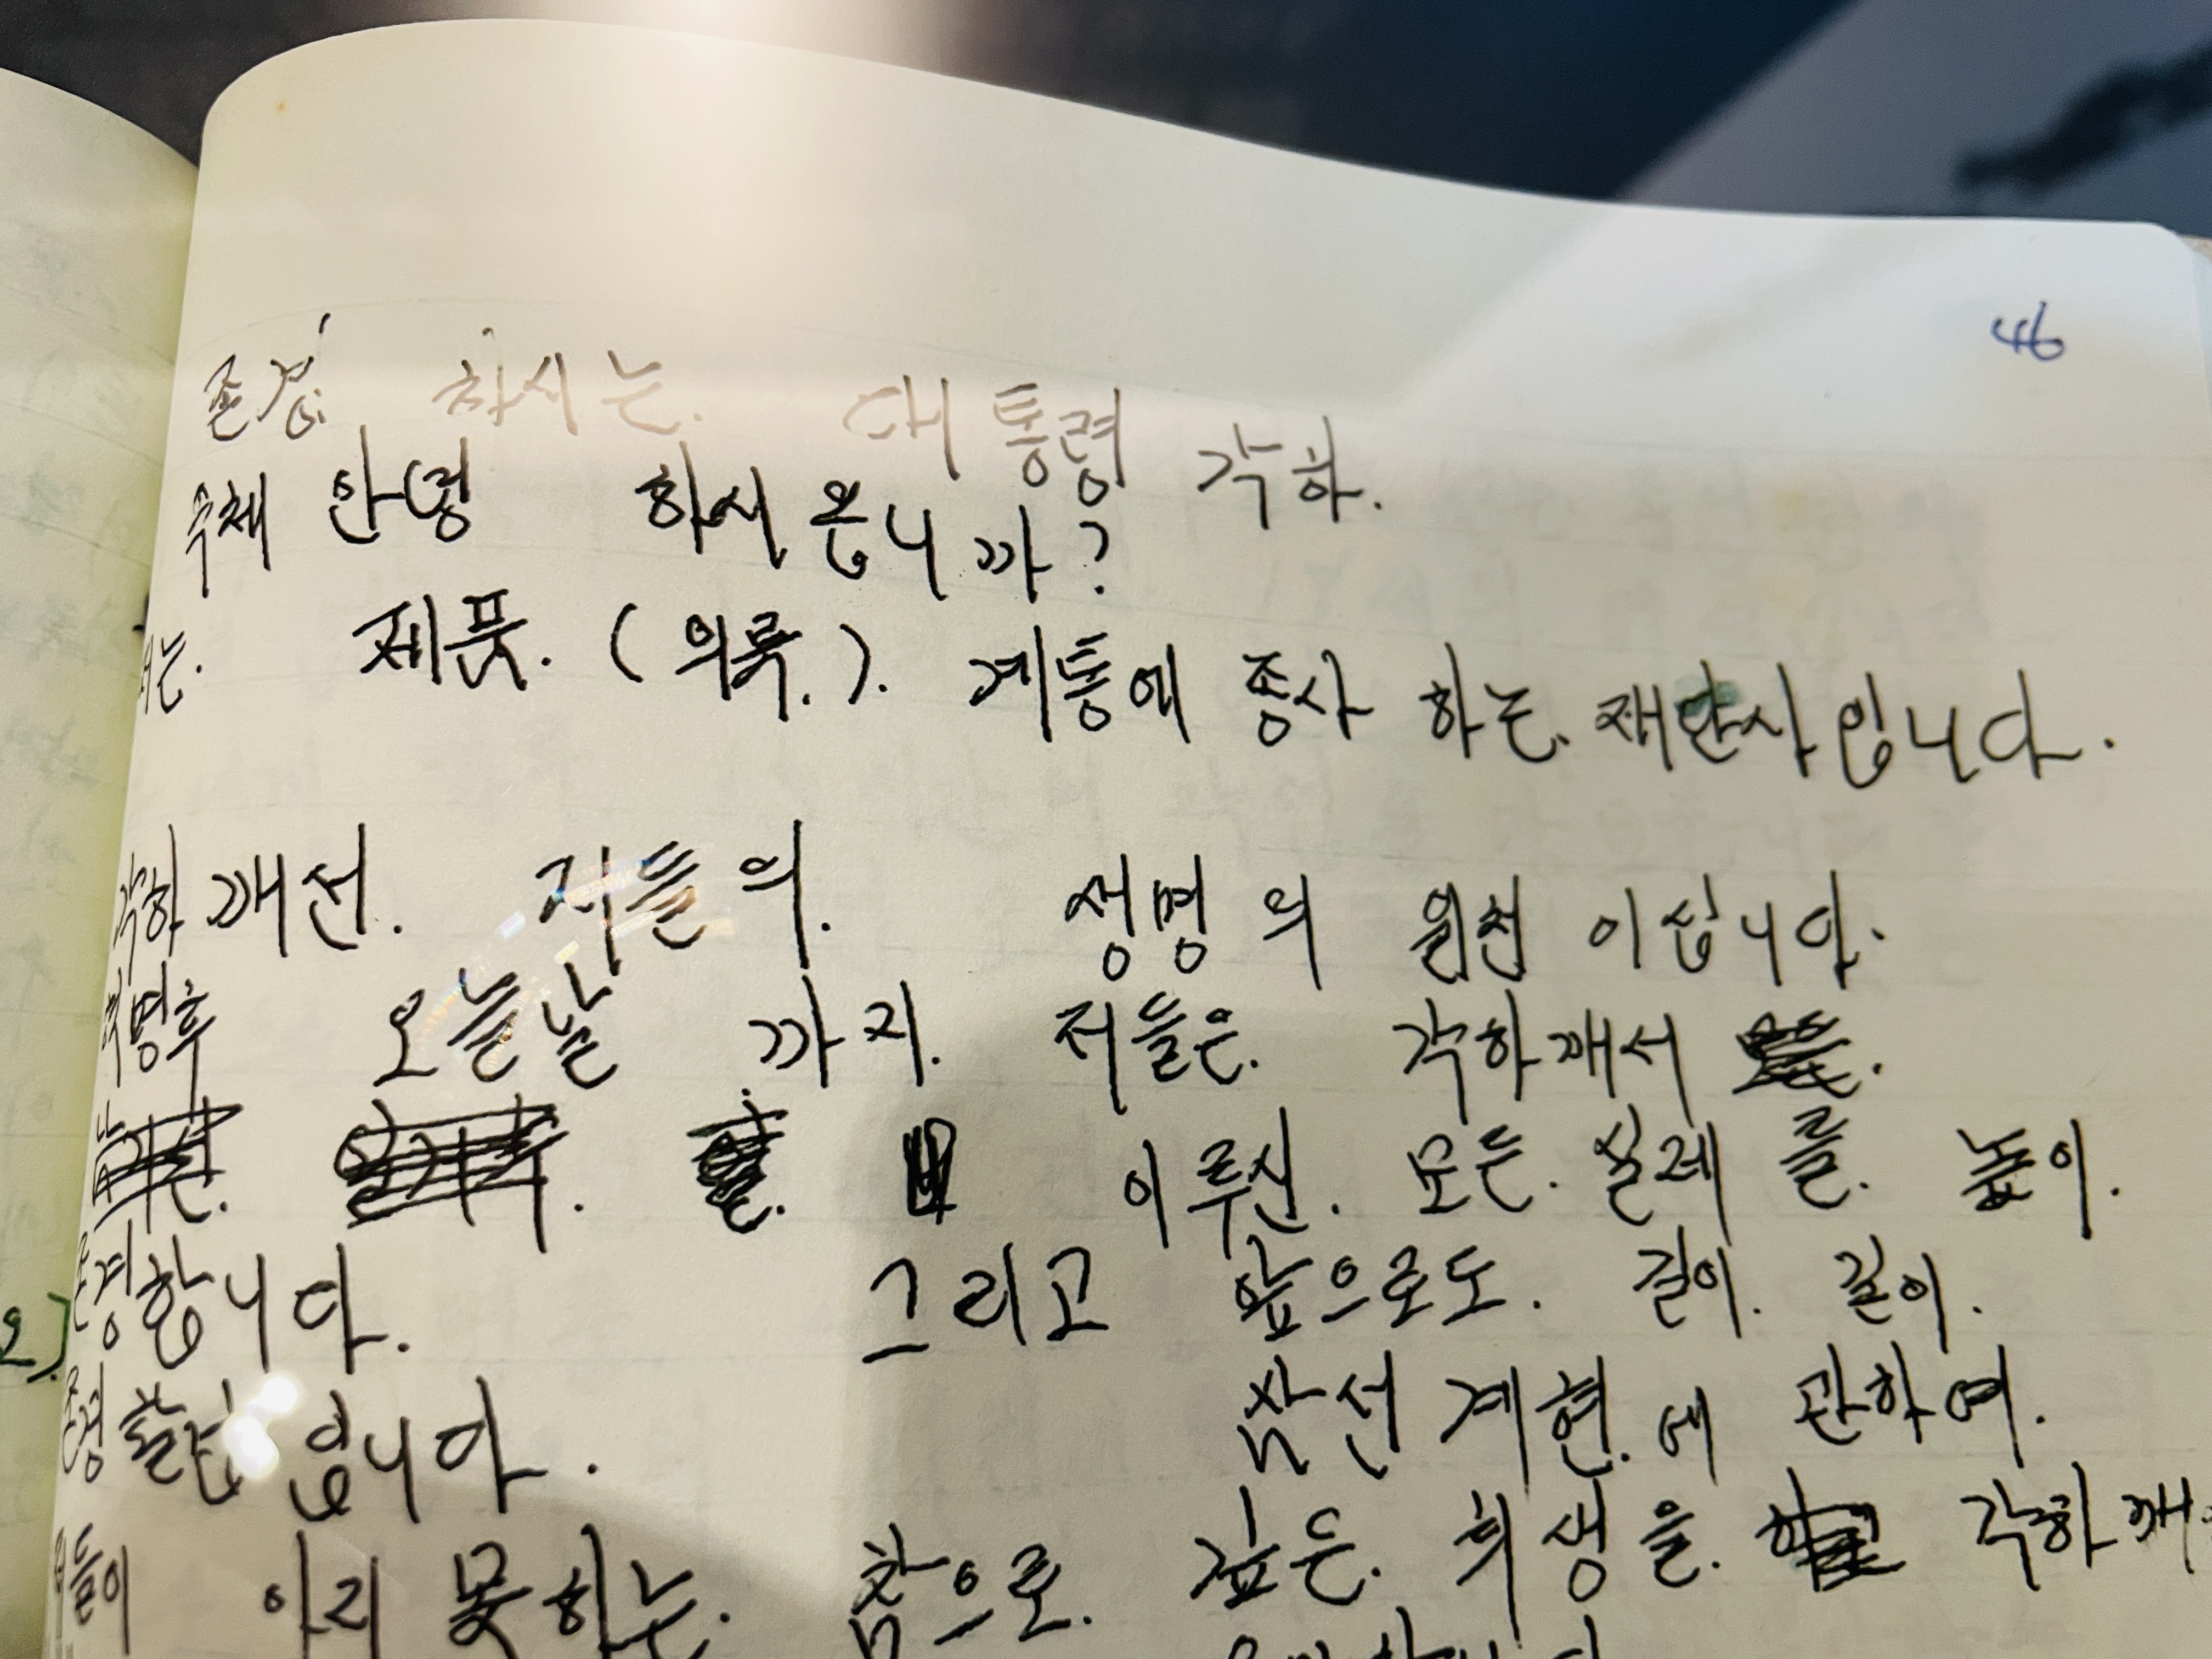 46
존경 하시는. 대통령 각하.
옥체 안녕 하시옵니까?
저는. 제품. (의류.). 계통에 종사 하는. 재단사입니다.
각하께선. 저들의. 생명의 원천 이십니다.
혁명후 오늘날 까지. 저들은. 각하께서
이루신. 모든. 실례를. 높이.
존경합니다. 그리고 앞으로도. 길이. 길이.
존경 할 입니다. 삼선계헌.에 관하여.
저들이 아리 못하는. 참으로. 깊은. 희생을. 각하께